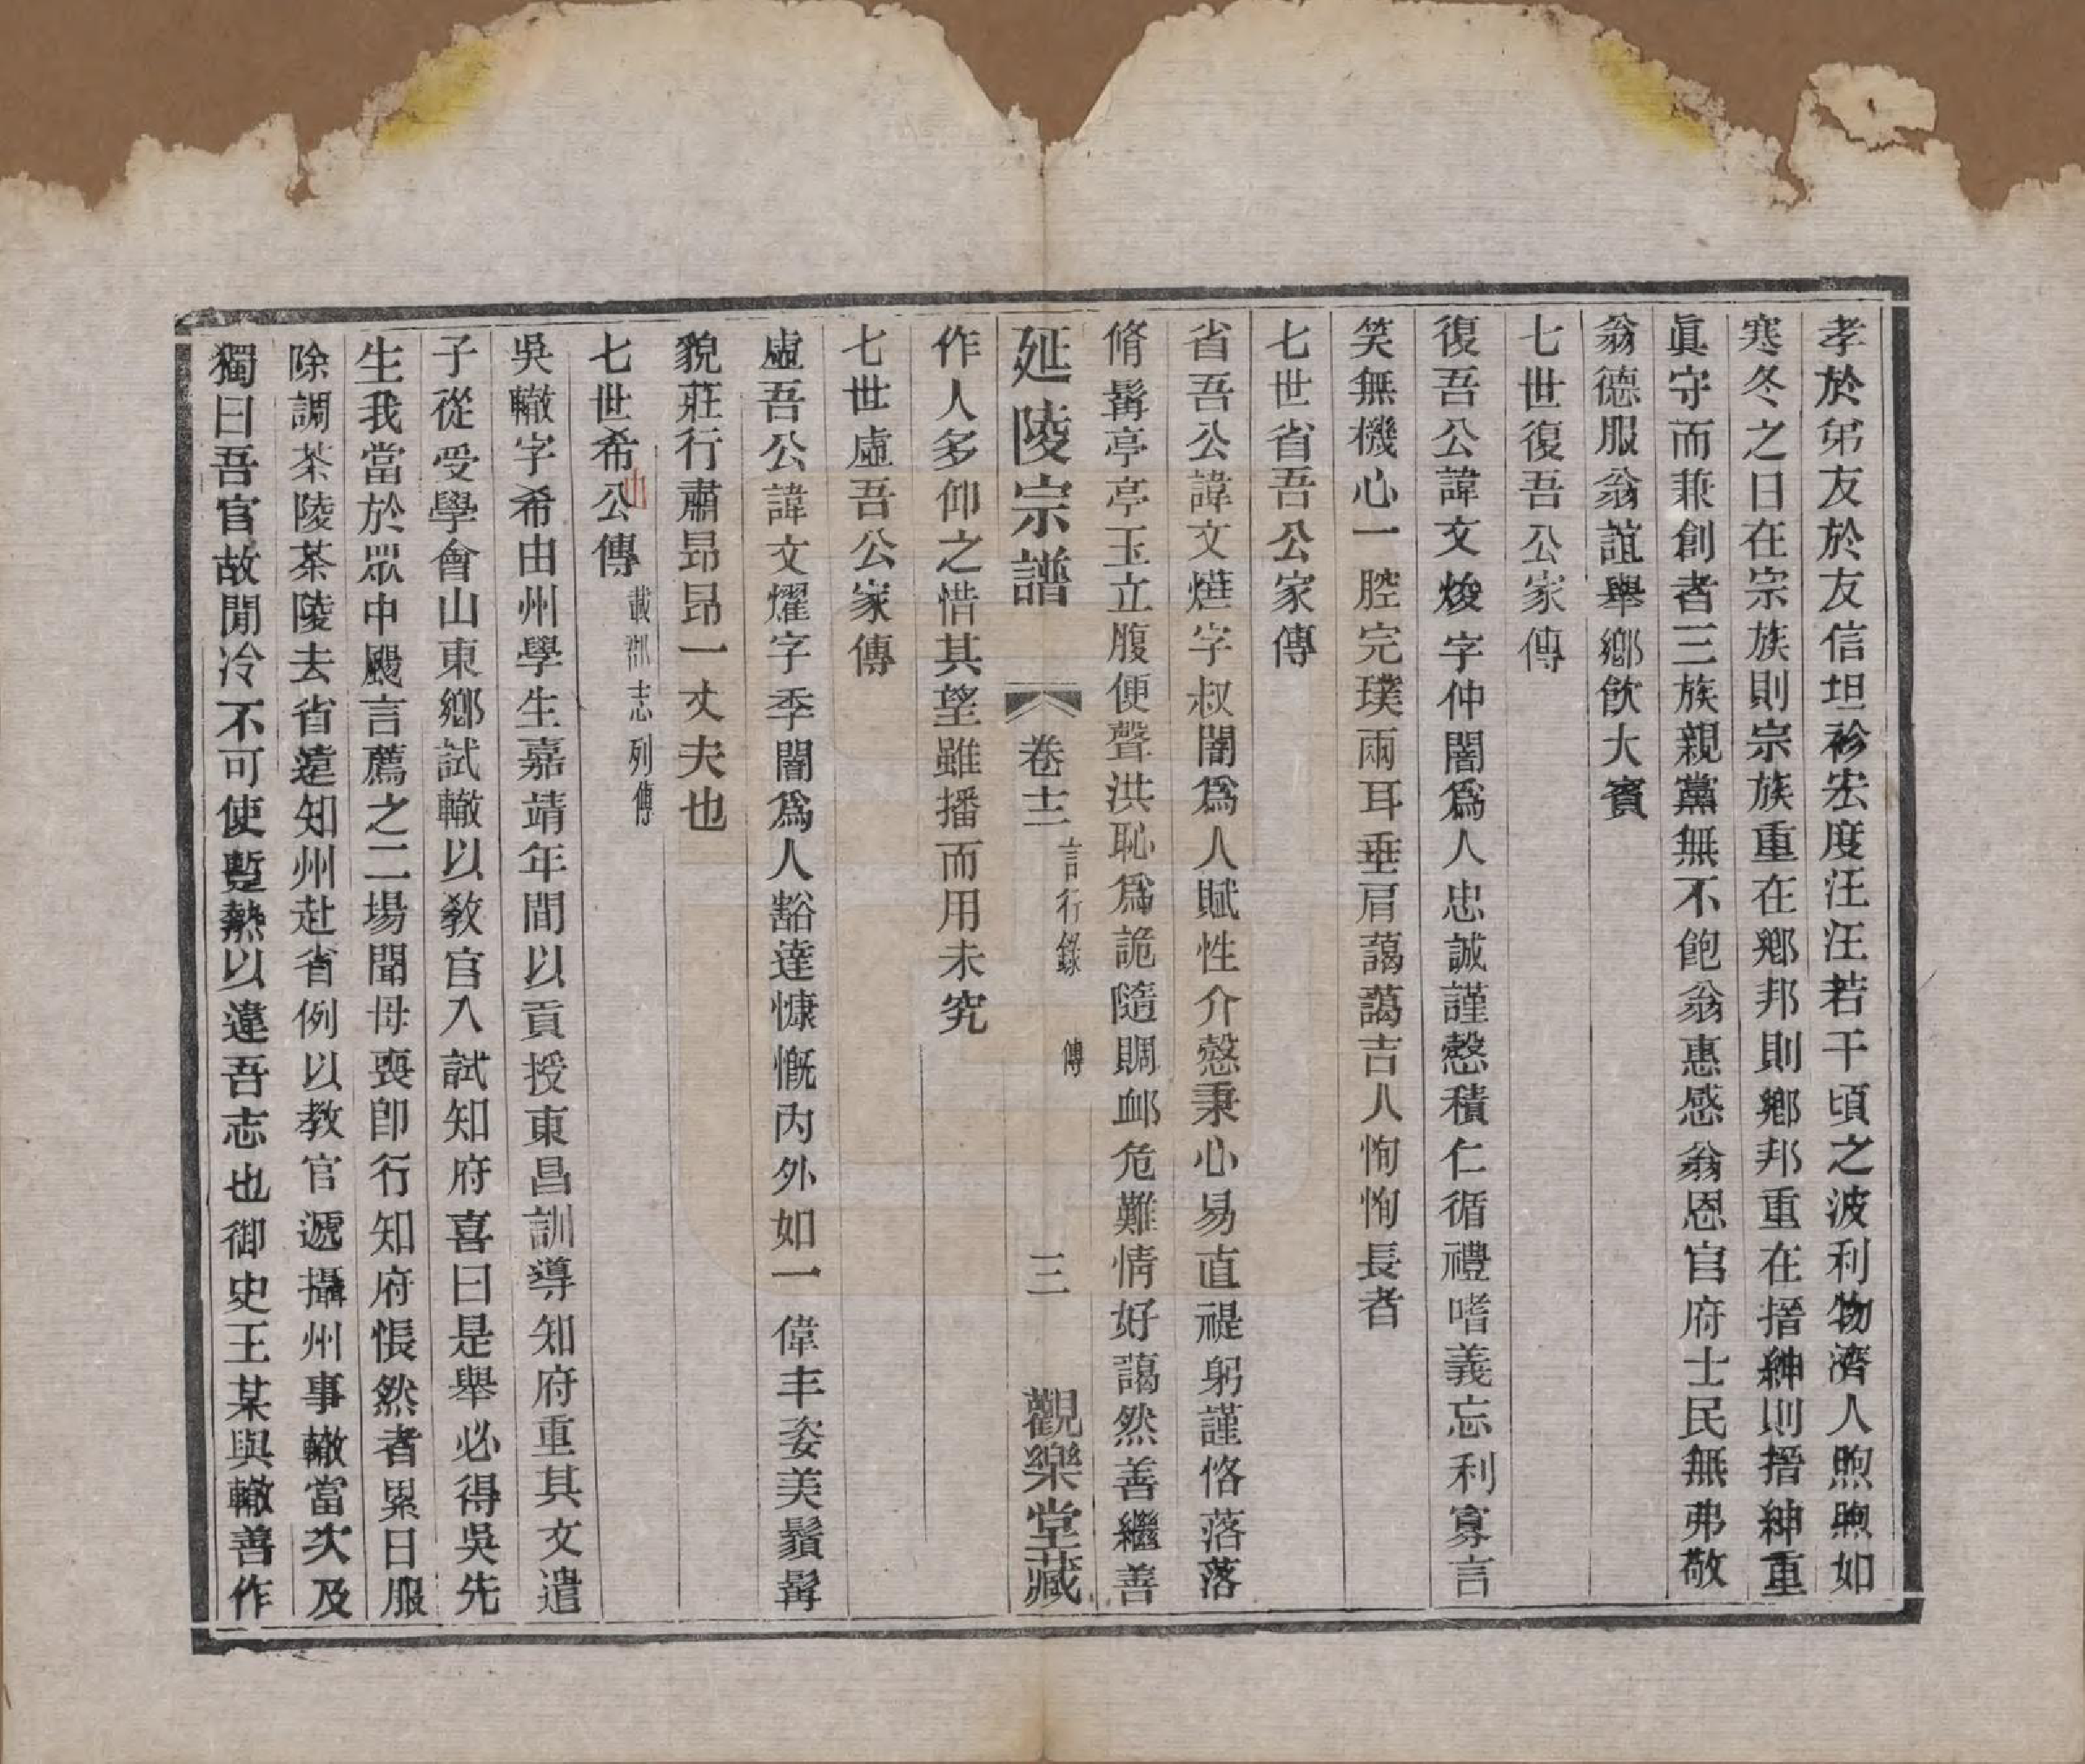 孝於弟友於友信坦衫宏度汪汪若干頃之波利物濟人煦煦如
寒冬之日在宗族則宗族重在鄉邦則鄉邦重在搢紳則搢紳重
眞守而兼創者三族親黨無不飽翁惠感翁恩官府士民無弗敬
翁德服翁誼舉鄉飮大賓
七世復吾公家傳
復吾公諱文焌字仲闇爲人忠誠謹慤積仁循禮嗜義忘利寡言
笑無機心一腔完璞兩耳垂肩藹藹吉人恂恂長者
七世省吾公家傳
省吾公諱文燁字叔闇爲人賦性介慤秉心易直禔躬謹恪落落
脩髯亭亭玉立腹便聲洪恥爲詭隨賙邮危難情好藹然善繼善
延陵宗譜 卷十二 言行錄 傳 三 觀樂堂藏
作人多仰之惜其望雖播而用未究
七世虛吾公家傳
虛吾公諱文燿字季闇爲人豁達慷慨內外如一偉丰姿美鬚髯
貌莊行肅昂昂一丈夫也
七世希由公傳 載郡志列傳
吳轍字希由州學生嘉靖年間以貢授東昌訓導知府重其文遣
子從受學會山東鄉試轍以敎官入試知府喜曰是舉必得吳先
生我當於眾中颺言薦之二場聞母喪卽行知府悵然者累日服
除調茶陵茶陵去省遠知州赴省例以教官遞攝州事轍當次及
獨曰吾官故閒冷不可使暫熱以違吾志也御史王某與轍善作